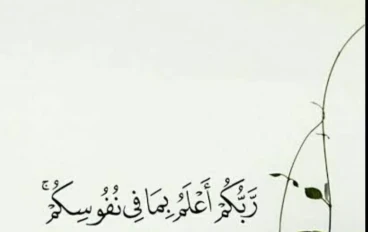 رَّبُّكُمْ أَعْلَمُ بِمَا فِي نُفُوسِكُمْ ۚ